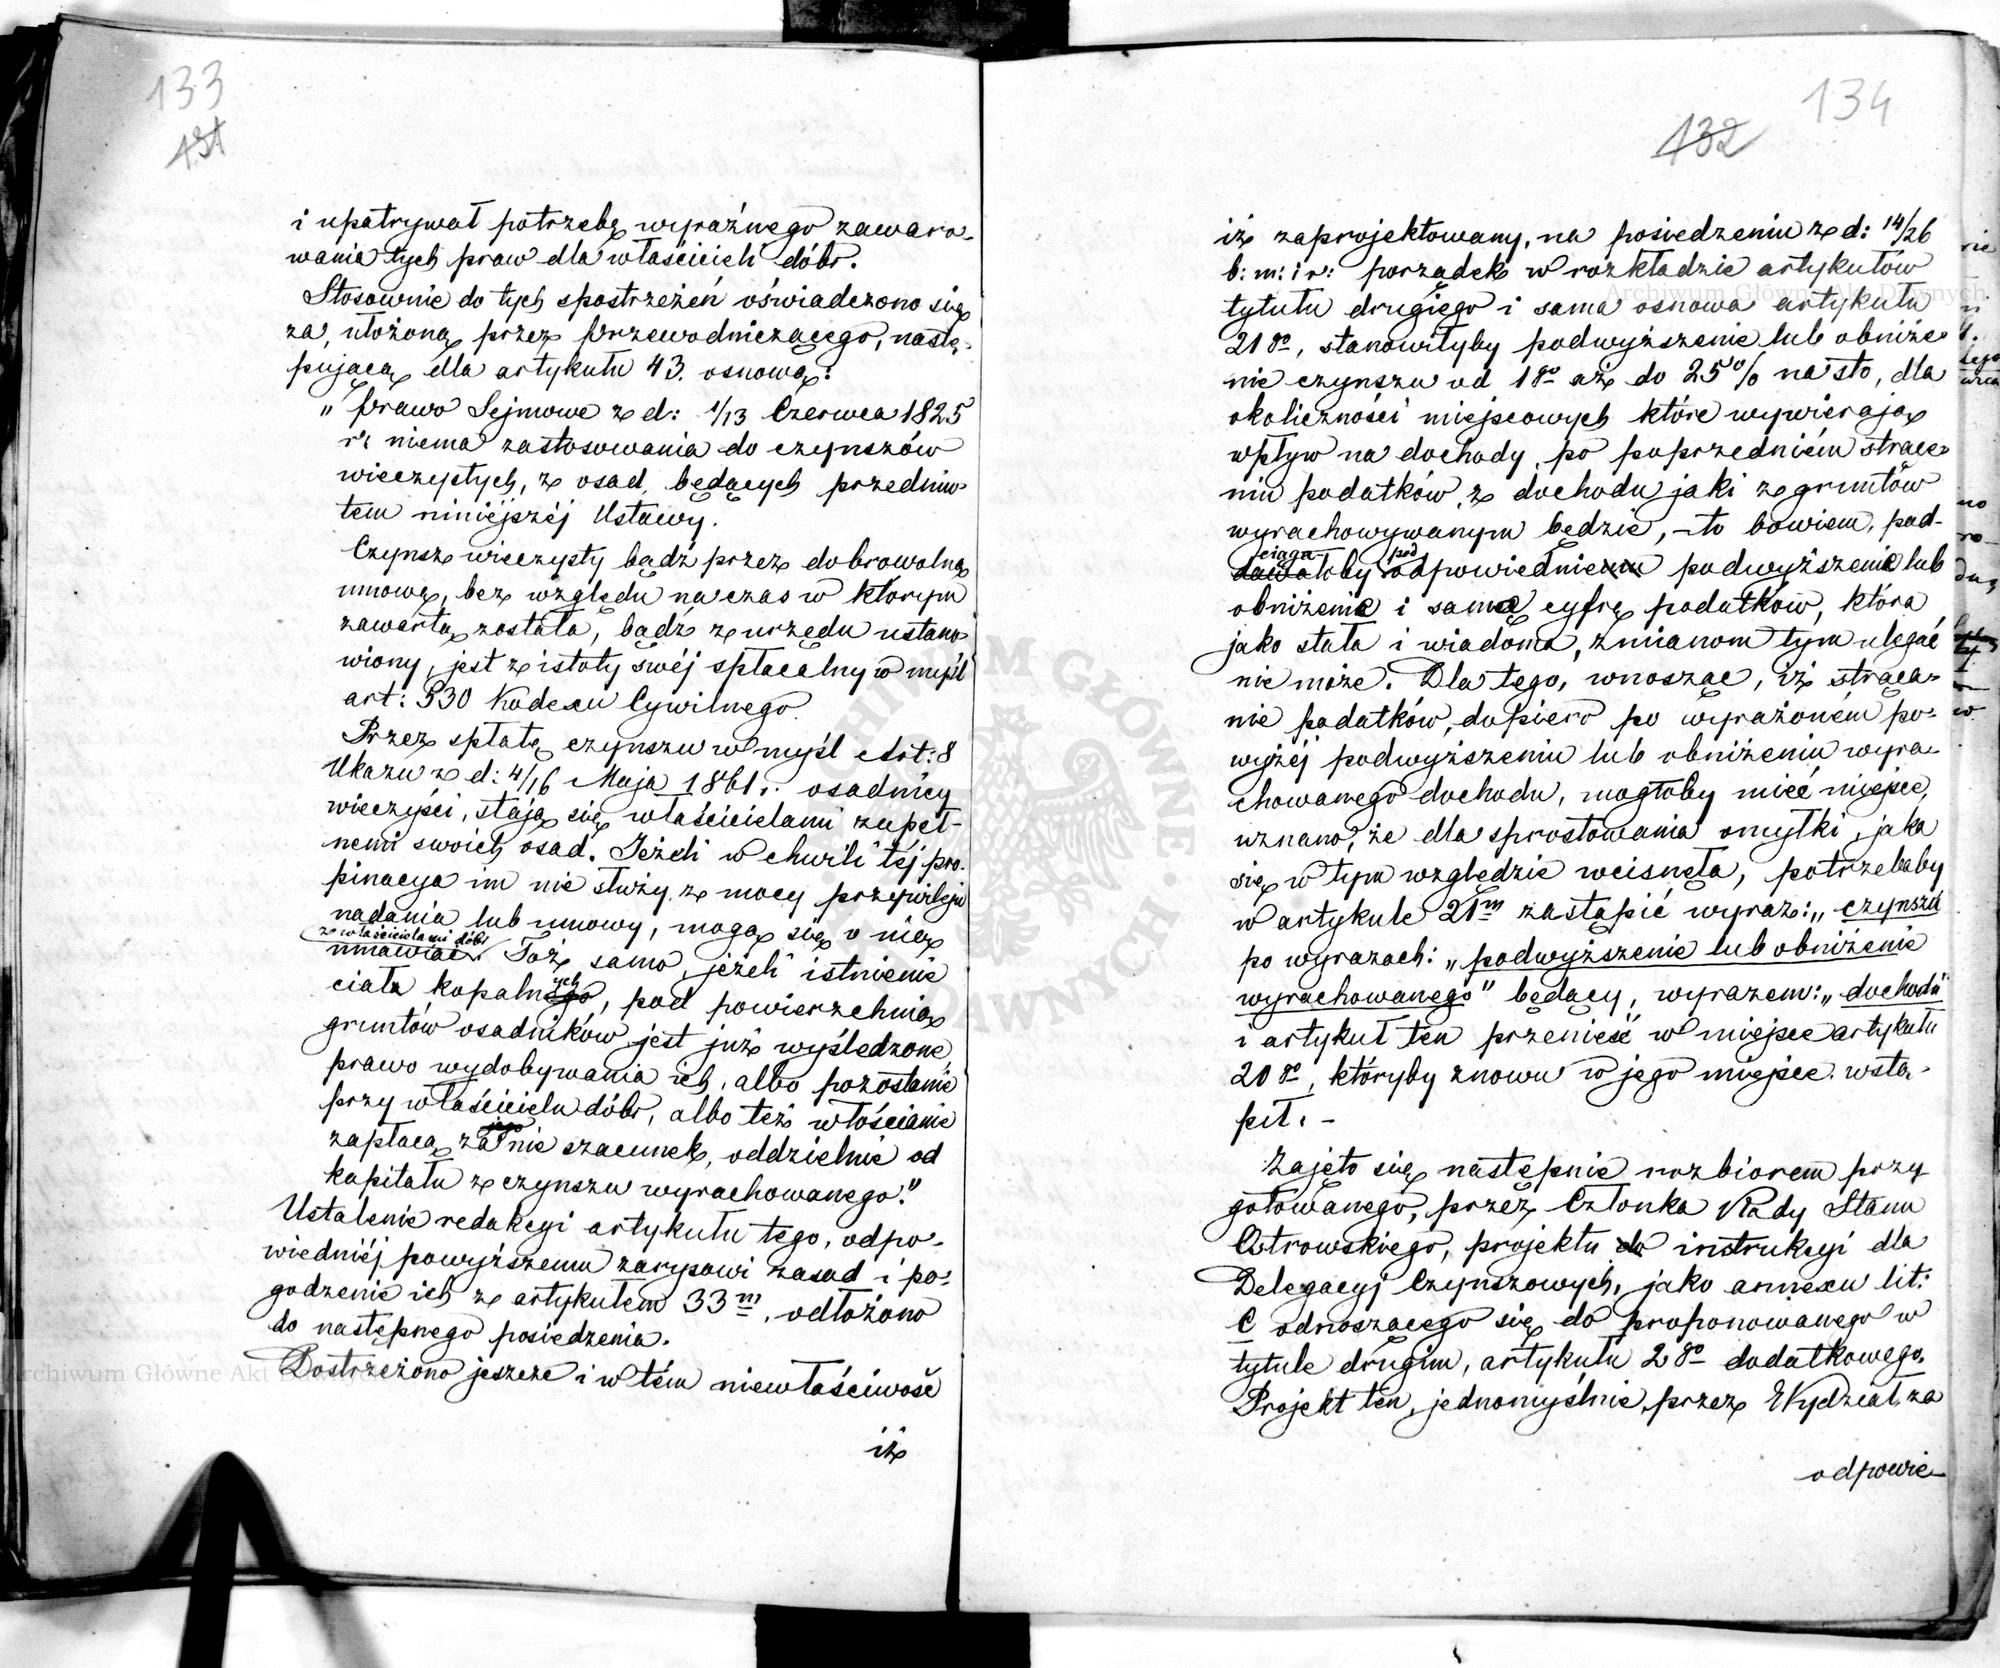 133
131
i upatrywał potrzebę wyraźnego zawaro-
wania tych praw dla właścicieli dóbr.
Stosownie do tych spostrzeżeń oświadczono się
za, ułożoną przez Przewodniczącego, nastę-
pującą dla artykułu 43. osnową:
„Prawo Sejmowe z d: 1/13 Czerwca 1825
r: niema zastosowania do czynszów
wieczystych, z osad będących przedmio-
tem niniejszéj Ustawy.
Czynsz wieczysty bądź przez dobrowolną
umowę, bez względu na czas w którym
zawartą została, bądź z urzędu ustano-
wiony, jest z istoty swéj spłacalny w myśl
art: 530 Kodexu Cywilnego.
Przez spłatę czynszu w myśl Art: 8
Ukazu z d: 4/16 Maja 1861 r. osadnicy
wieczyści, stają się właścicielami zupeł-
nemi swoich osad. Jeżeli w chwili téj pro-
pinacya im nie służy z mocy przywileju
nadania lub umowy, mogą się o nią
z właścicielami dóbr
umawiać. Toż samo jeżeli istnienie
ciała kopalnego, pod powierzchnią
ych
gruntów osadników jest już wyśledzone,
prawo wydobywania ich, albo pozostanie
przy właścicielu dóbr, albo też włościanie
zapłacą za nie szacunek, oddzielnie od
jego
kapitału z czynszu wyrachowanego."
Ustalenie redakcyi artykułu tego, odpo-
wiedniéj powyższemu zarysowi zasad i po-
godzenie ich z artykułem 33m, odłożono
do następnego posiedzenia.
Dostrzeżono jeszcze i w tém niewłaściwość
iż
134
132
iż zaprojektowany, na posiedzeniu z d: 14/26
b: m: i r: porządek w rozkładzie artykułów
tytułu drugiego i sama osnowa artykułu
21go, stanowiłyby podwyższenie lub obniże-
nie czynszu od 1go aż do 25% na sto, dla
okoliczności miejscowych które wywierają
wpływ na dochody, po poprzedniém strące-
niu podatków, z dochodu jaki z gruntów
wyrachowywanym będzie, – to bowiem, pod-
ciąga pod
dawałoby odpowiednie podwyższenie lub
obniżenie i samą cyfrę podatków, która
jako stała i wiadoma, zmianom tym ulegać
nie może. Dla tego, wnosząc, iż strąca-
nie podatków, dopiero po wyrażoném po-
wyżéj podwyższeniu lub obniżeniu wyra-
chowanego dochodu, mogłoby mieć miejsce,
uznano, że dla sprostowania omyłki, jaka
się w tym względzie wcisnęła, potrzebaby
w artykule 21m zastąpić wyraz: „czynszu
po wyrazach: „podwyższenie lub obniżenie
wyrachowanego" będący, wyrazem: „dochodu"
i artykuł ten przenieść w miejsce artykułu
20go, któryby znowu w jego miejsce wstą-
pił. –
Zajęto się następnie rozbiorem przy
gotowanego, przez Członka Rady Stanu
Ostrowskiego, projektu do instrukcyi dla
Delegacyj Czynszowych, jako annexu lit:
C odnoszącego się do proponowanego w
tytule drugim, artykułu 28o dodatkowego.
Projekt ten, jednomyślnie, przez Wydział, za
odpowie-
Archiwum Główne Akt Dawnych
Archiwum Główne Akt Dawnych